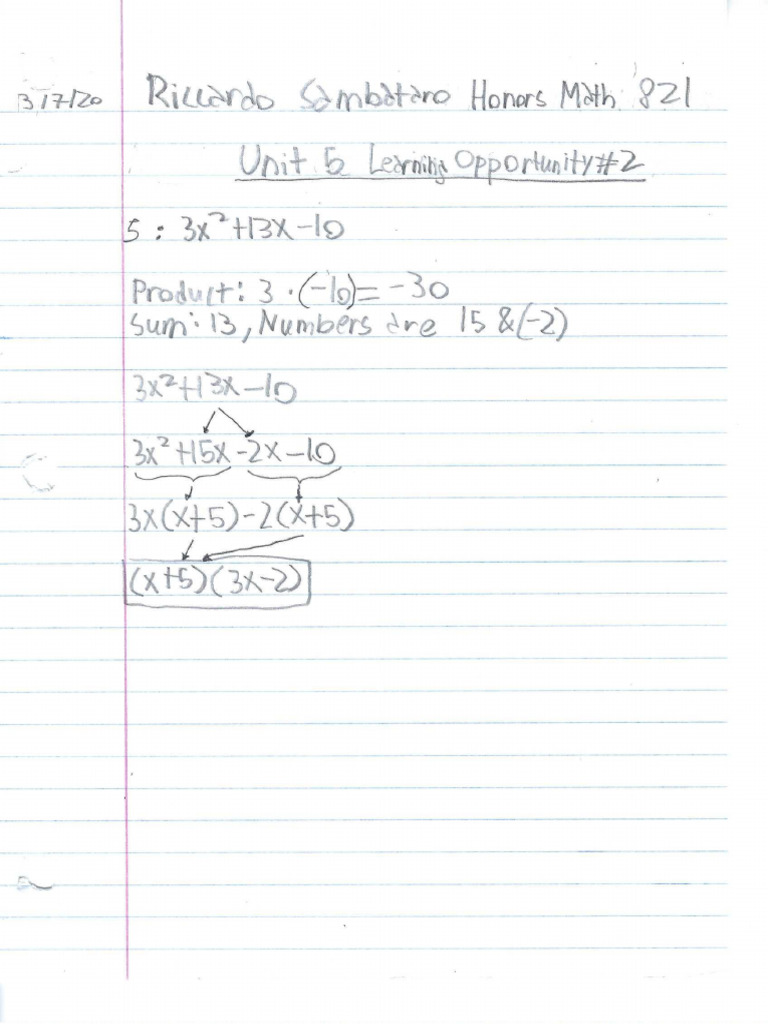 3/7/20 Riccardo Sambataro Honors Math 821
Unit 5 Learning Opportunity #2
5 : 3x²+13x-10
Product: 3 · (-10) = -30
Sum: 13, Numbers are 15 & (-2)
3x²+13x-10
3x²+15x-2x-10
3x(x+5)-2(x+5)
(x+5)(3x-2)